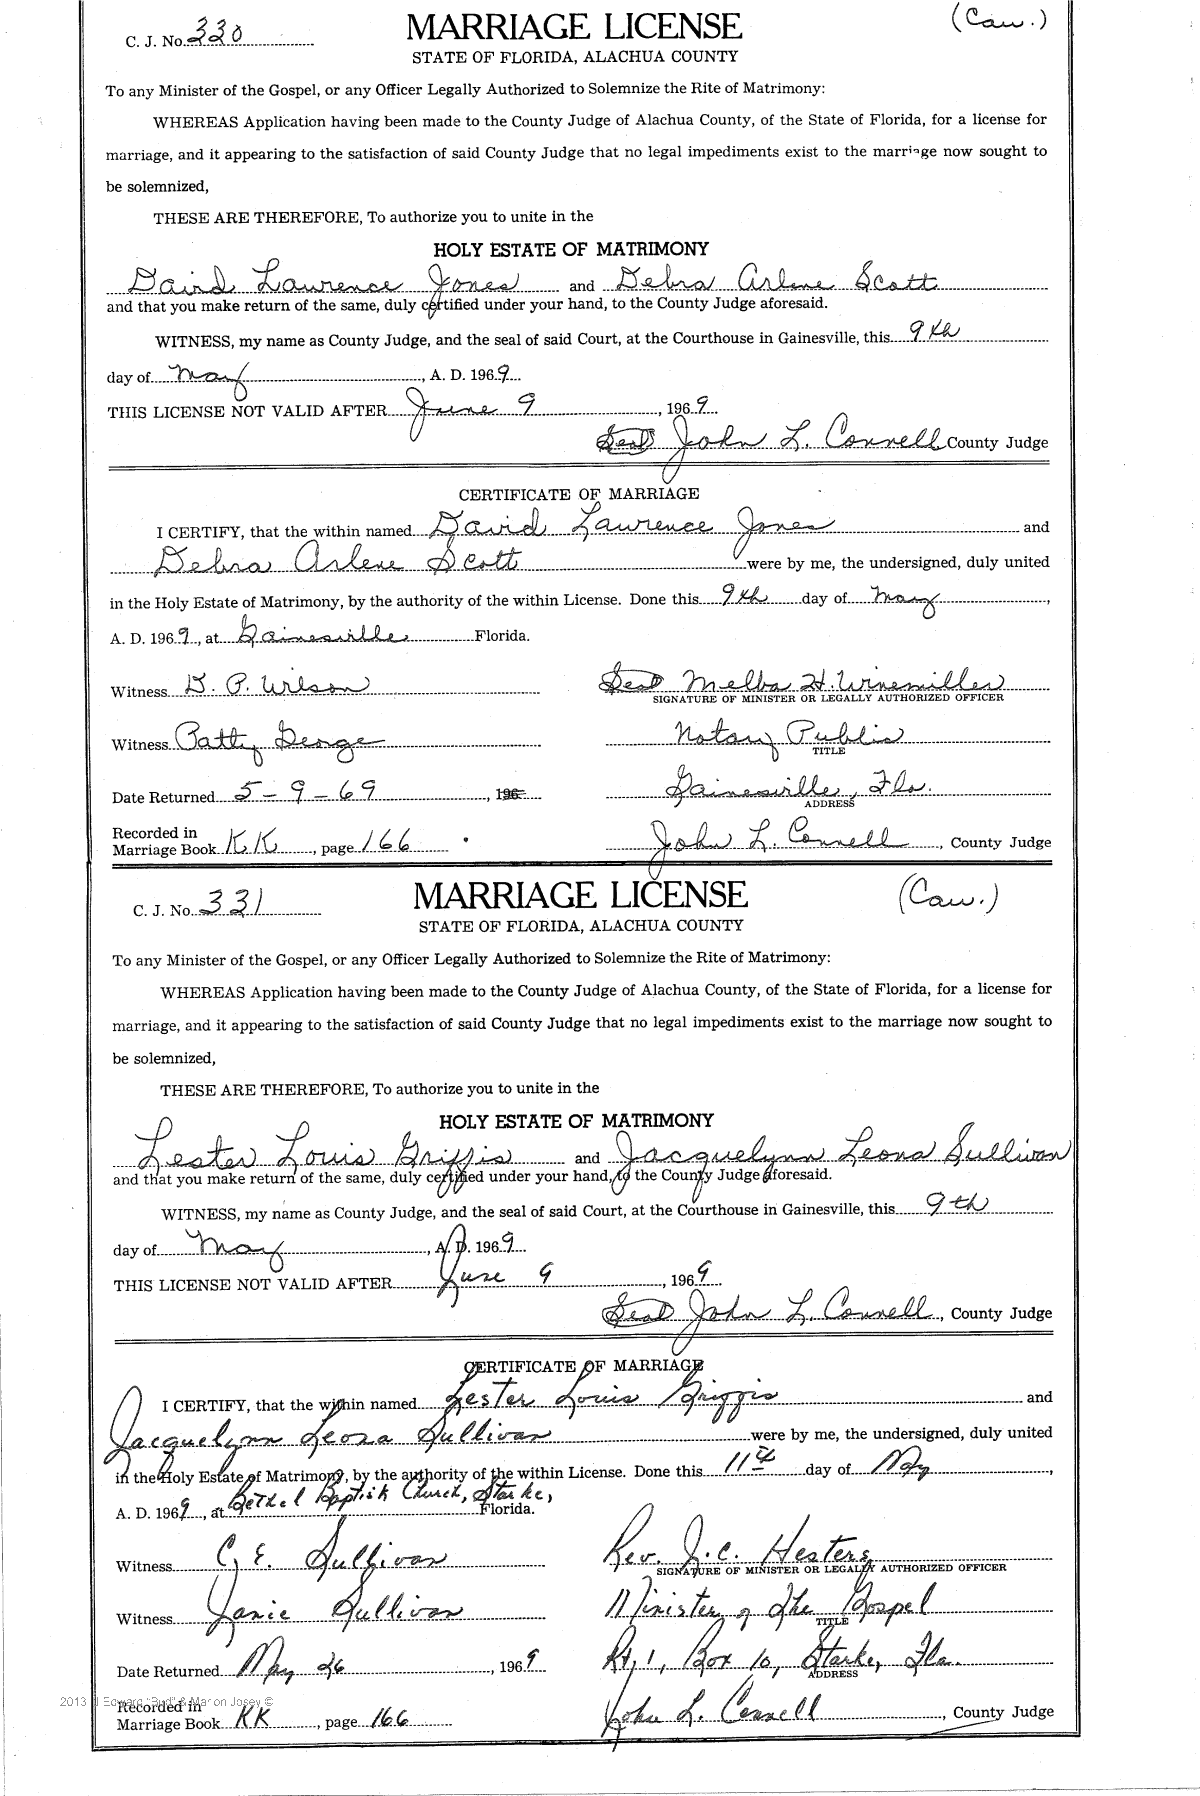 C. J. No. 330
MARRIAGE LICENSE
(Cau.)
STATE OF FLORIDA, ALACHUA COUNTY
To any Minister of the Gospel, or any Officer Legally Authorized to Solemnize the Rite of Matrimony:
WHEREAS Application having been made to the County Judge of Alachua County, of the State of Florida, for a license for
marriage, and it appearing to the satisfaction of said County Judge that no legal impediments exist to the marriage now sought to
be solemnized,
THESE ARE THEREFORE, To authorize you to unite in the
HOLY ESTATE OF MATRIMONY
David Lawrence Jones and Debra Arlene Scott
and that you make return of the same, duly certified under your hand, to the County Judge aforesaid.
WITNESS, my name as County Judge, and the seal of said Court, at the Courthouse in Gainesville, this 9th
day of May, A. D. 1969
THIS LICENSE NOT VALID AFTER June 9, 1969
Seal John L. Connell County Judge
CERTIFICATE OF MARRIAGE
I CERTIFY, that the within named David Lawrence Jones and
Debra Arlene Scott were by me, the undersigned, duly united
in the Holy Estate of Matrimony, by the authority of the within License. Done this 9th day of May,
A. D. 1969, at Gainesville Florida.
Witness D. P. Wilson
Seal Melba H. Winemiller
SIGNATURE OF MINISTER OR LEGALLY AUTHORIZED OFFICER
Witness Patty George
Notary Public
TITLE
Date Returned 5-9-69, 196
Gainesville, Fla.
ADDRESS
Recorded in
Marriage Book KK, page 166
John L. Connell, County Judge
C. J. No. 331
MARRIAGE LICENSE
(Cau.)
STATE OF FLORIDA, ALACHUA COUNTY
To any Minister of the Gospel, or any Officer Legally Authorized to Solemnize the Rite of Matrimony:
WHEREAS Application having been made to the County Judge of Alachua County, of the State of Florida, for a license for
marriage, and it appearing to the satisfaction of said County Judge that no legal impediments exist to the marriage now sought to
be solemnized,
THESE ARE THEREFORE, To authorize you to unite in the
HOLY ESTATE OF MATRIMONY
Lester Louis Griffis and Jacquelynn Leona Sullivan
and that you make return of the same, duly certified under your hand, to the County Judge aforesaid.
WITNESS, my name as County Judge, and the seal of said Court, at the Courthouse in Gainesville, this 9th
day of May, A. D. 1969
THIS LICENSE NOT VALID AFTER June 9, 1969
Seal John L. Connell, County Judge
CERTIFICATE OF MARRIAGE
I CERTIFY, that the within named Lester Louis Griffis and
Jacquelynn Leona Sullivan were by me, the undersigned, duly united
in the Holy Estate of Matrimony, by the authority of the within License. Done this 11th day of May,
A. D. 1969, at Bethel Baptist Church, Starke, Florida.
Witness C. E. Sullivan
Rev. J. C. Hesters
SIGNATURE OF MINISTER OR LEGALLY AUTHORIZED OFFICER
Witness Janie Sullivan
Minister of The Gospel
TITLE
Date Returned May 26, 1969
Rt, 1, Box 10, Starke, Fla.
ADDRESS
2013 Edward "Bud" & Marion Josey ©
Recorded in
Marriage Book KK, page 166
John L. Connell, County Judge